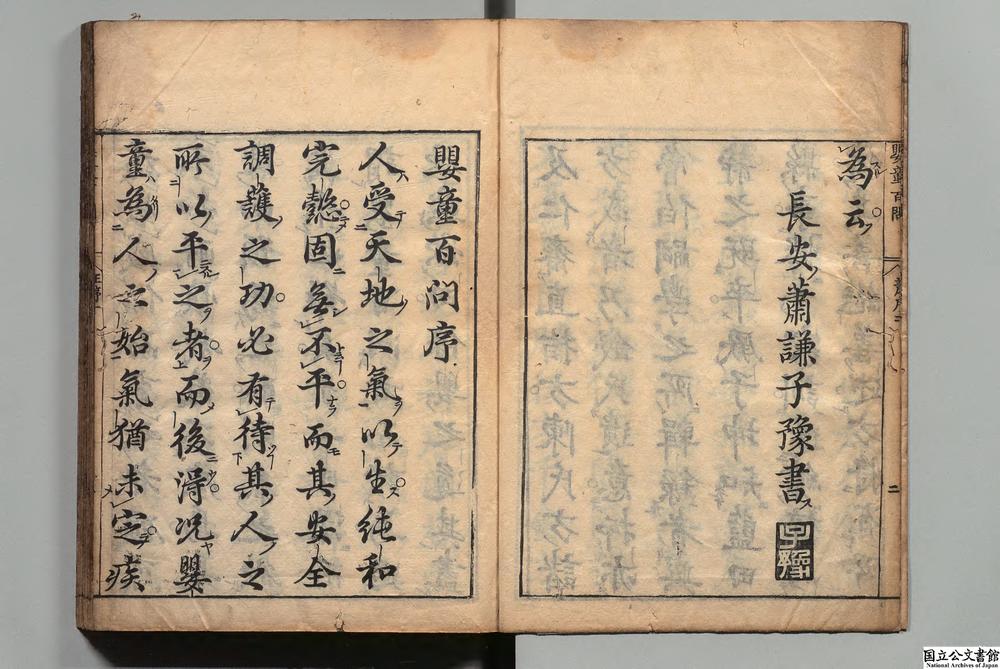 為云
長安蕭謙子豫書
子豫
嬰童百問
二
嬰童百問序
人受天地之氣以生純和
完懿固無不平而其安全
調護之功必有待其人之
所以平之者而後得况嬰
童為人之始氣猶未定疾
国立公文書館
National Archives of Japan